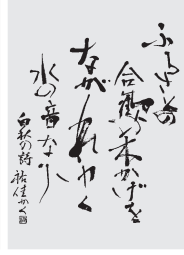 ふるさとの
合歓の木かげを
ながれゆく
水の音なり
白秋の詩 祐佳かく